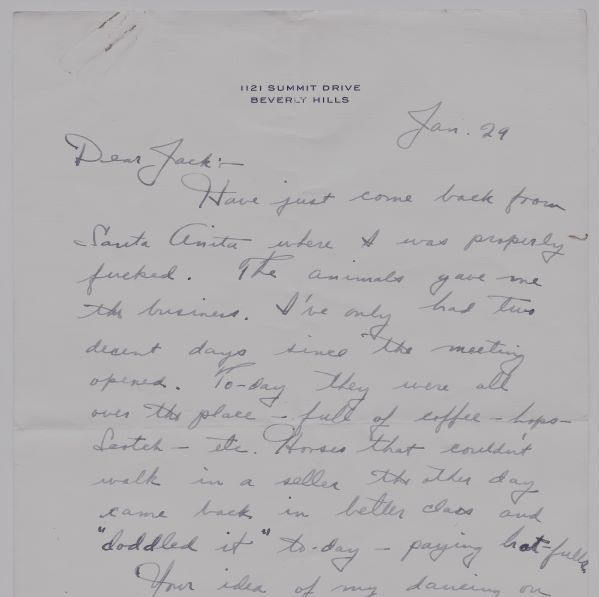 1121 SUMMIT DRIVE
BEVERLY HILLS
Jan. 29
Dear Jack:-
Have just come back from
Santa Anita where I was properly
fucked. The animals gave me
the business. I've only had two
decent days since the meeting
opened. To-day they were all
over the place - full of coffee - hops -
Scotch - etc. Horses that couldn't
walk in a seller the other day
came back in better class and
"doddled it" to-day - paying hat-fulls.
Your idea of my dancing on